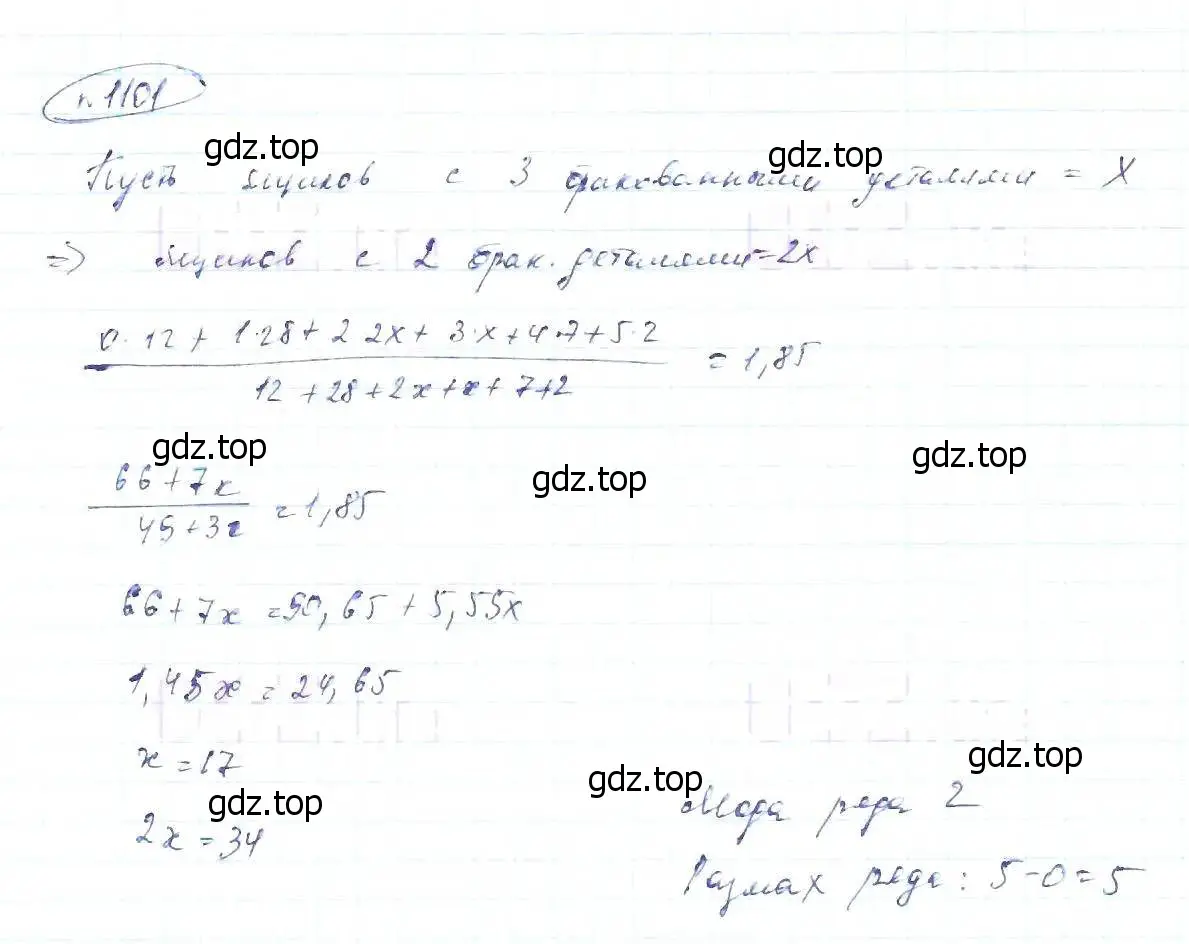 п. 1101
gdz.top gdz.top
Пусть ящиков с 3 бракованными деталями = X
=> ящиков с 2 брак. деталями = 2x
0·12 + 1·28 + 2·2x + 3·x + 4·7 + 5·2
= 1,85
12 + 28 + 2x + x + 7 + 2
gdz.top gdz.top gdz.top
66 + 7x
= 1,85
49 + 3x
66 + 7x = 90,65 + 5,55x
1,45x = 24,65
x = 17
gdz.top gdz.top gdz.top
2x = 34
Мода ряда 2
Размах ряда: 5 - 0 = 5